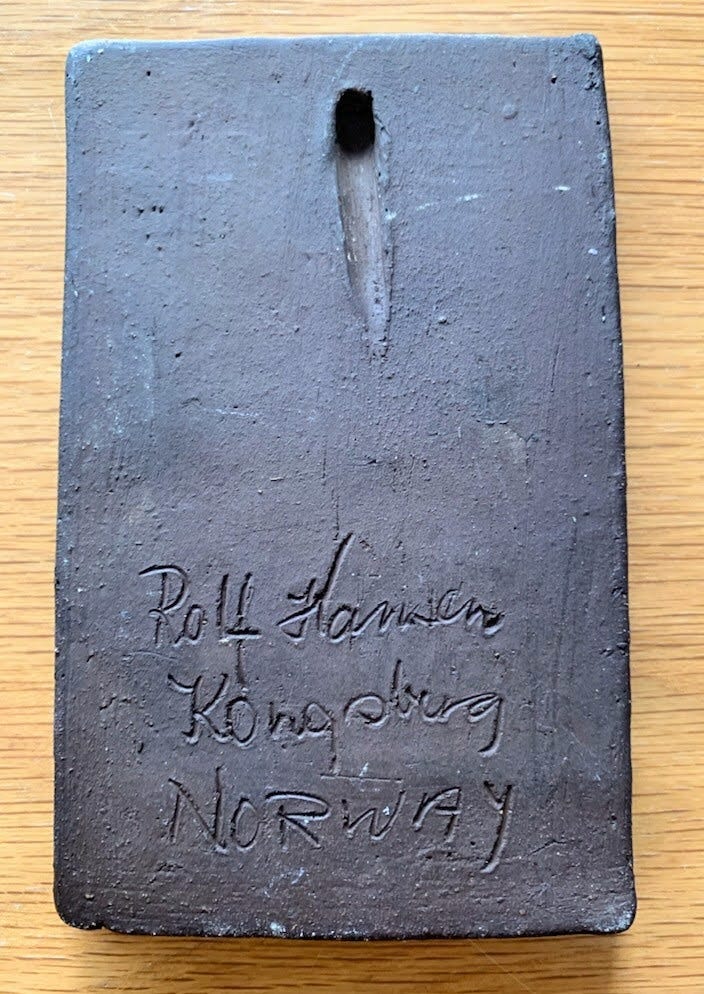 Rolf Hansen
Kongsberg
NORWAY